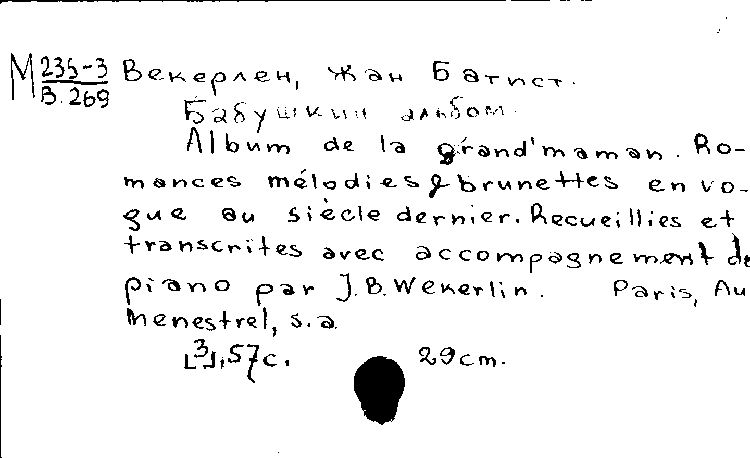 М 235-3 Векерлен, Жан Батист.
В. 269
Бабушкин альбом.
Album de la grand'maman. Ro-
mances mélodies & brunettes en vo-
gue au siècle dernier. Recueillies et
transcrites avec accompagnement de
piano par J.B. Wekerlin. Paris, Au
menestrel, s.a.
[3], 57 с. 29 cm.